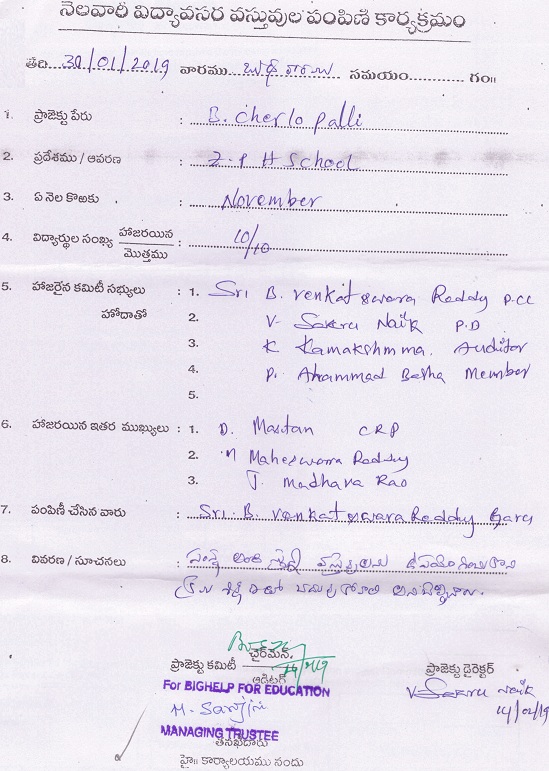 నెలవారి విద్యావసర వస్తువుల పంపిణి కార్యక్రమం
తేది 30/01/2019 వారము బుధవారం సమయం గం॥
1. ప్రాజెక్టు పేరు : B. cherlo palli
2. ప్రదేశము / ఆవరణ : Z.P H School
3. ఏ నెల కొఱకు : November
4. విద్యార్థుల సంఖ్య హాజరయిన / మొత్తము : 10/10
5. హాజరైన కమిటీ సభ్యులు : 1. Sri B. Venkateswara Reddy P.CC
హోదాతో 2. V. Sakru Naik P.D
3. K Kamakshmma. Auditor
4. P. Ahammad Basha Member
5.
6. హాజరయిన ఇతర ముఖ్యులు : 1. D. Mastan CRP
2. M Maheswara Reddy
3. J. Madhava Rao
7. పంపిణీ చేసిన వారు : Sri. B. Venkateswara Reddy Garu
8. వివరణ / సూచనలు : సంస్థ
చైర్మన్,
ప్రాజెక్టు కమిటీ
ఆడిటర్
ప్రాజెక్టు డైరెక్టర్
For BIGHELP FOR EDUCATION
V. Sakru Naik
M. Sanjini
14/02/19
MANAGING TRUSTEE
తనిఖీదారు
హై॥ కార్యాలయము నందు